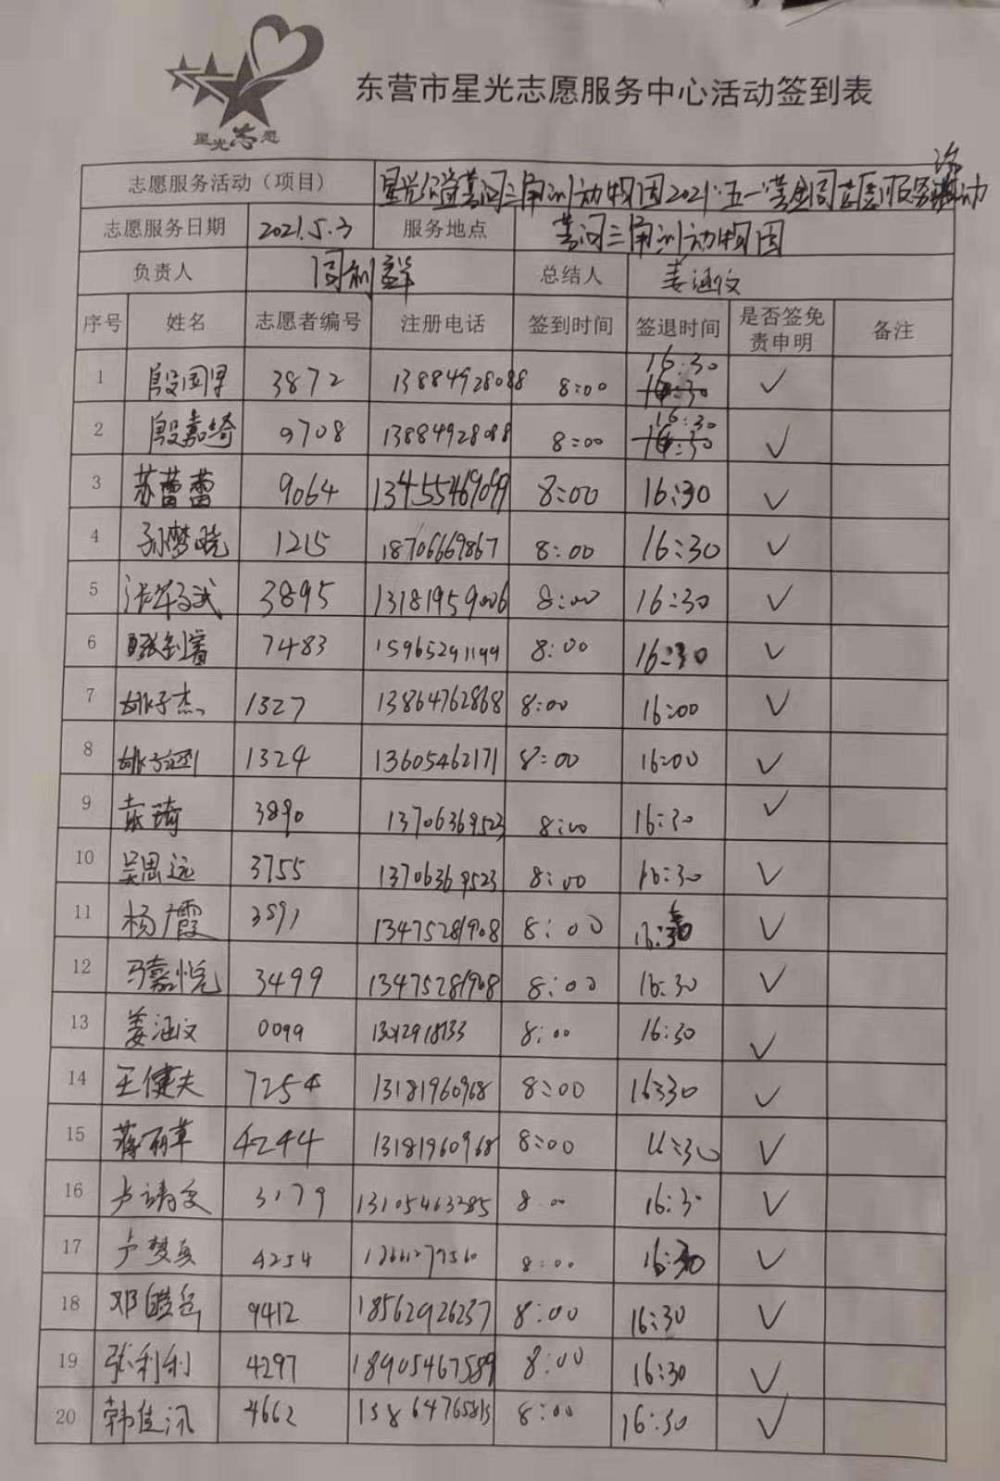 星光志愿
东营市星光志愿服务中心活动签到表
志愿服务活动（项目） 星光公益黄河三角洲动物园2021"五一"黄金周志愿服务活动
志愿服务日期 2021.5.3 服务地点 黄河三角洲动物园
负责人 周利群 总结人 姜涵文
序号 姓名 志愿者编号 注册电话 签到时间 签退时间 是否签免责申明 备注
1 殷国早 3872 13884928088 8:00 16:30 ✓
2 殷嘉绮 9708 13884928088 8:00 16:30 ✓
3 苏蕾蕾 9064 13455469099 8:00 16:30 ✓
4 孙梦晓 1215 18706669867 8:00 16:30 ✓
5 3895 13181959006 8:00 16:30 ✓
6 7483 15965291199 8:00 16:30 ✓
7 姚子杰 1327 13864762868 8:00 16:00 ✓
8 1324 13605462171 8:00 16:00 ✓
9 袁琦 3890 13706369523 8:00 16:30 ✓
10 吴思远 3755 13706369523 8:00 16:30 ✓
11 杨广霞 3891 13475281908 8:00 16:30 ✓
12 马嘉悦 3499 13475281908 8:00 16:30 ✓
13 姜涵文 0099 8:00 16:30 ✓
14 王健夫 7254 13181960968 8:00 16:30 ✓
15 蒋丽草 4244 13181960968 8:00 16:30 ✓
16 卢靖文 3179 13105463285 8:00 16:30 ✓
17 卢梦真 4254 8:00 16:30 ✓
18 邓皓岳 9412 18562926237 8:00 16:30 ✓
19 张利利 4297 18905467589 8:00 16:30 ✓
20 韩佳汛 4662 8:00 16:30 ✓